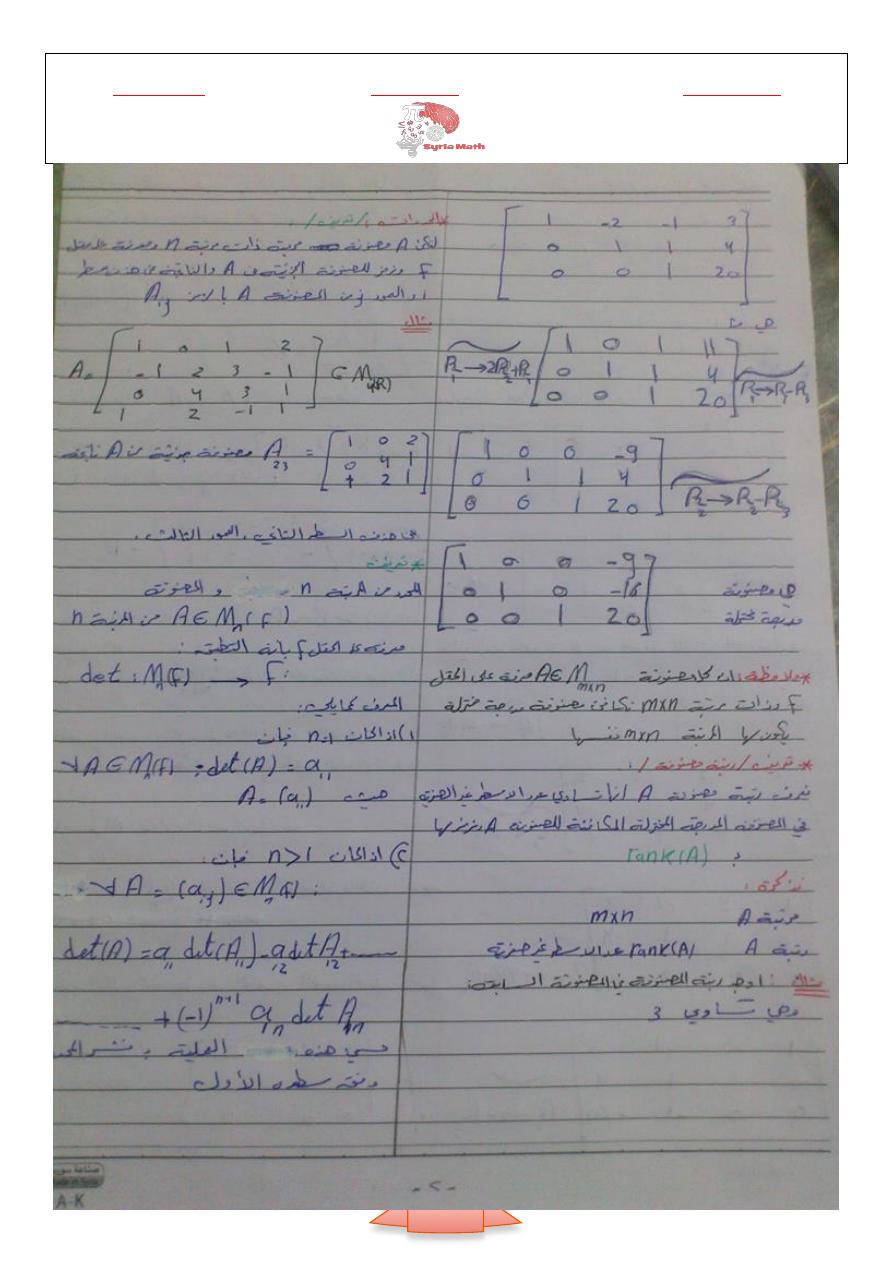 Syria Math
1 -2 -1 3
0 1 1 4
0 0 1 20
R1→2R2+R1
1 0 1 11
0 1 1 4
0 0 1 20
R1→R1-R3
1 0 0 -9
0 1 1 4
0 0 1 20
R2→R2-R3
1 0 0 -9
0 1 0 -16
0 0 1 20
هي مصفوفة
مدرجة مختزلة
*ملاحظة: ان كل مصفوفة A∈M m×n معرفة على الحقل
F وذات مرتبة m×n تكافئ مصفوفة مدرجة مختزلة
يكون لها المرتبة m×n نفسها
*تعريف /رتبة مصفوفة/:
نعرف رتبة مصفوفة A أنها تساوي عدد الاسطر غير الصفرية
في المصفوفة المدرجة المختزلة المكافئة للمصفوفة A ونرمز لها
بـ rank(A)
تذكرة:
مرتبة A m×n
رتبة A rank(A) عدد الاسطر غير صفرية
مثال: اوجد رتبة المصفوفة في المصفوفة السابقة:
وهي تساوي 3
*المحددات: /تعريف/:
لتكن A مصفوفة مربعة ذات مرتبة n ومعرفة على حقل
F ونرمز للمصفوفة الجزئية من A والناتجة عن حذف سطر
i والعمود j من المصفوفة A بالرمز Aij
مثال
A=
1 0 1 2
-1 2 3 -1
0 4 3 1
1 2 -1 1
∈ M4(R)
1 0 2
0 4 1
1 2 1
= A23 مصفوفة جزئية من A ناتجة
عن حذف السطر الثاني والعمود الثالث.
*تعريف
المحدد من المرتبة n و المصفوفة
A∈Mn(F) من المرتبة n
معرفة على الحقل F بانه التطبيق:
det : Mn(F) → F:
المعرف كمايلي:
1) اذا كان n=1 فإن
∀A∈Mn(F) : det(A) = a11
حيث A = (a11)
2) اذا كان n>1 فإن:
∀A = (aij) ∈ Mn(F) :
det(A) = a11 det(A11) - a12 det A12 + ......
+ (-1)^n+1 a1n det A1n
نسمي هذه العملية بـ نشر المحدد
وفق سطره الأول
- 2 -
صناعة سورية
Made in Syria
A-K